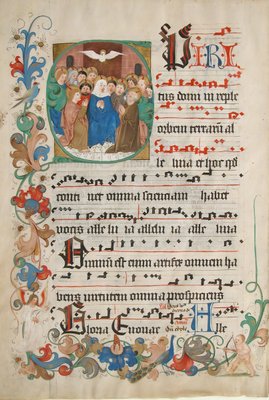 SPIRI
tus domini reple
orbem terrarum al
le luia et hoc qd
conti net omnia scienciam habet
vocis alle lu ia alle lu ia alle luia
Omnium est enim artifex omnem ha
bens virtutem omnia prospiciens
Gloria Euouae Alle